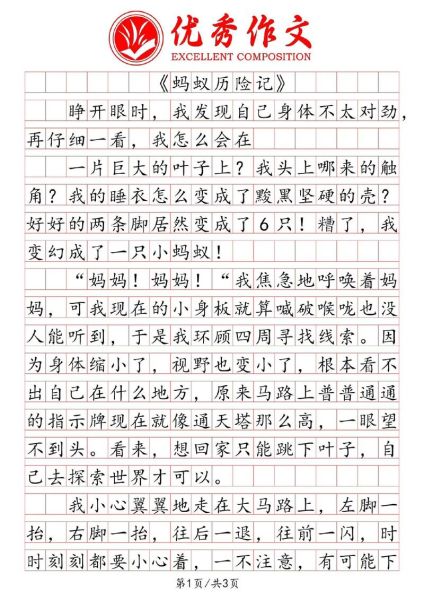 优秀作文
EXCELLENT COMPOSITION
《蚂蚁历险记》
睁开眼时，我发现自己身体不太对劲，
再仔细一看，我怎么会在
一片巨大的叶子上？我头上哪来的触
角？我的睡衣怎么变成了黢黑坚硬的壳？
好好的两条脚居然变成了6只！糟了，我
变幻成了一只小蚂蚁！
“妈妈！妈妈！“我焦急地呼唤着妈
妈，可我现在的小身板就算喊破喉咙也没
人能听到，于是我环顾四周寻找线索。因
为身体缩小了，视野也变小了，根本看不
出自己在什么地方，原来马路上普普通通
的指示牌现在就像通天塔那么高，一眼望
不到头。看来，想回家只能跳下叶子，自
己去探索世界才可以。
我小心翼翼地走在大马路上，左脚一
抬，右脚一抬，往后一退，往前一闪，时
时刻刻都要小心着，一不注意，有可能下
第1页/共3页